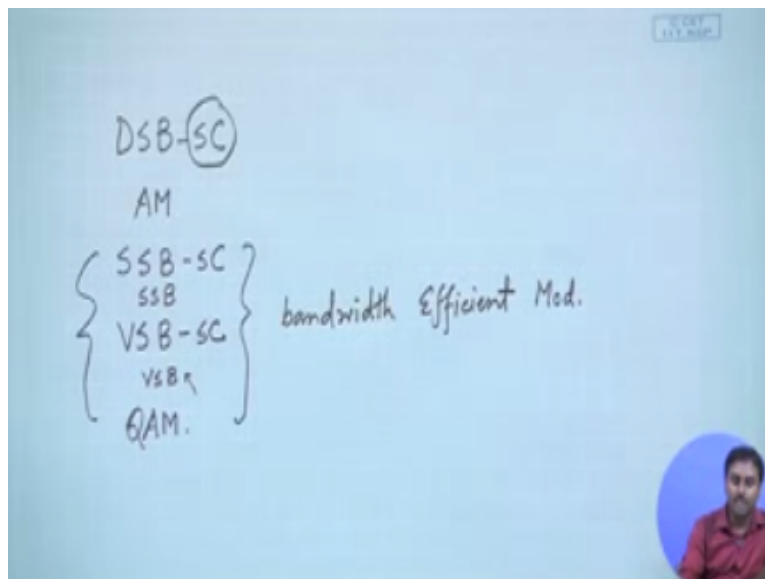 DSB-SC
AM
SSB-SC
SSB
VSB-SC
VSB
QAM.
bandwidth Efficient Mod.